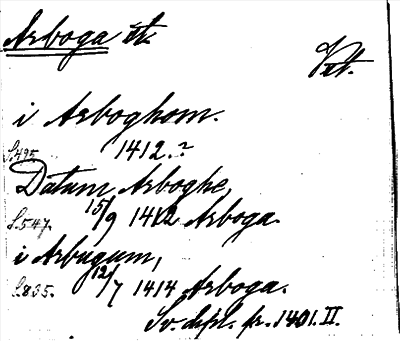 Arboga st.
Vet.
i Arboghom.
S. 495. 1412.?
Datum Arboghe,
S. 547. 15/9 1412 Arboga.
i Arbugum,
S. 835. 12/7 1414 Arboga.
Sv. dipl. fr. 1401. II.